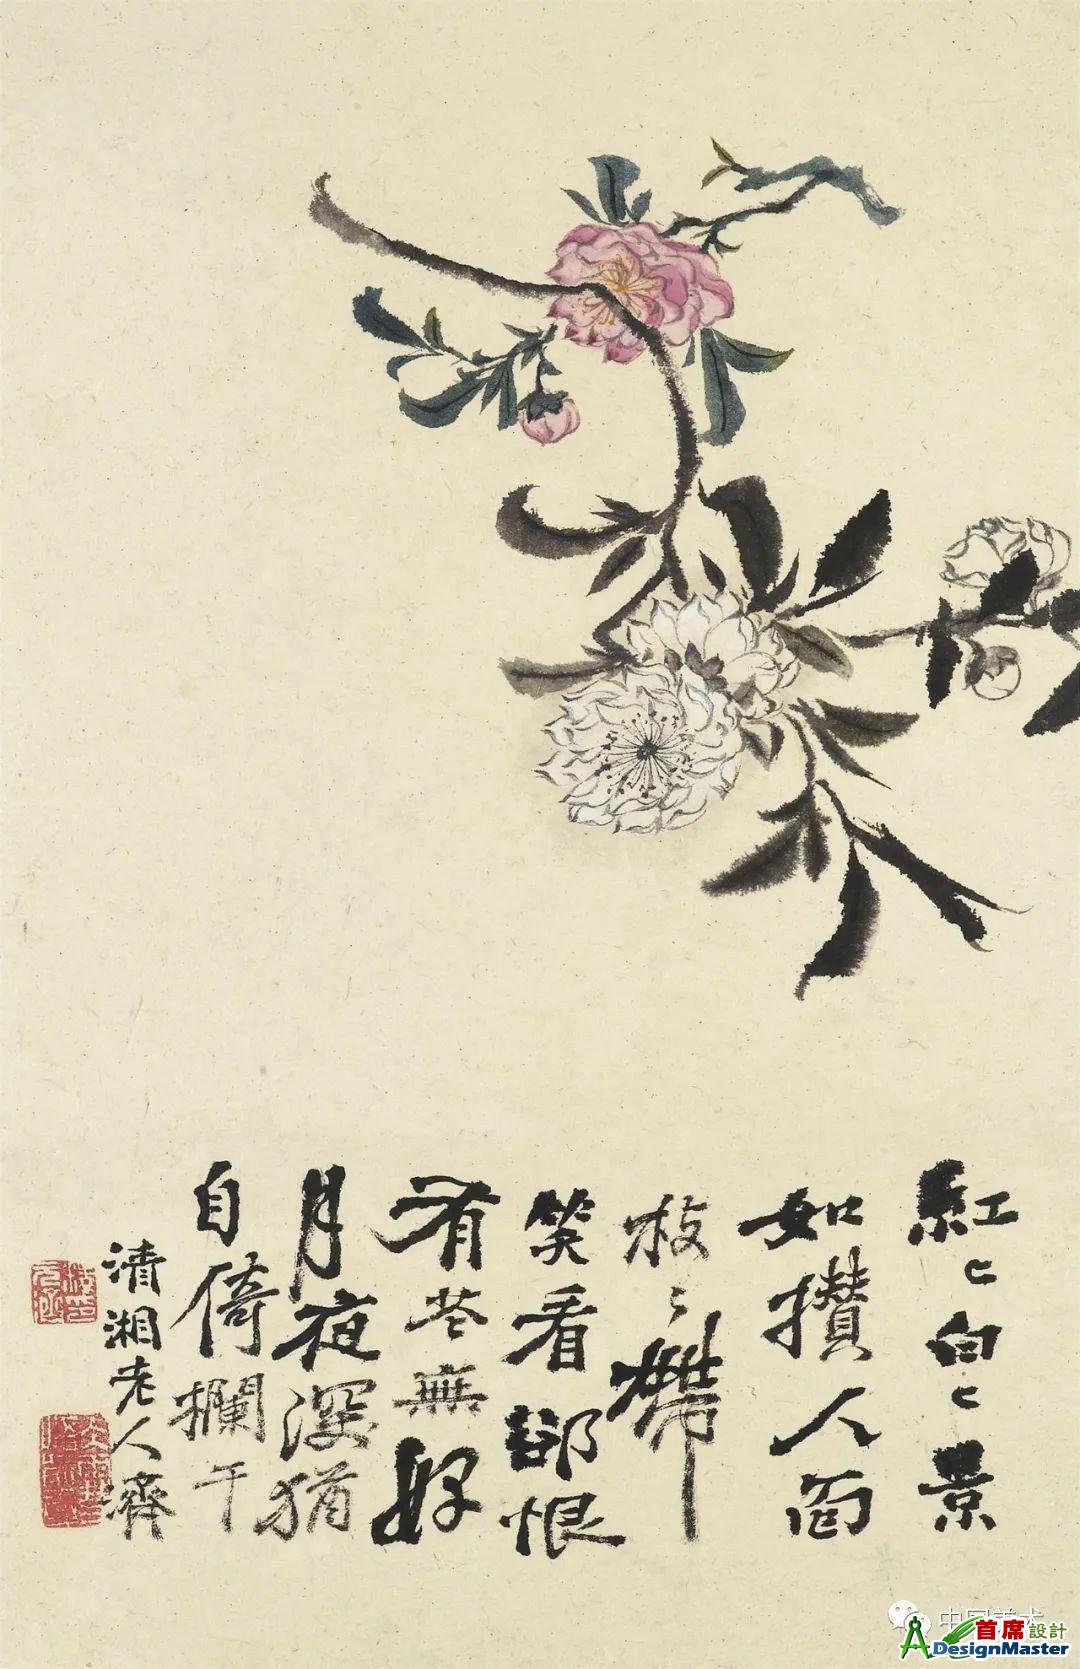 紅〻白〻景
如攢人面
枝〻帶
笑看郤恨
有花無好
月夜深猶
自倚欄干
清湘老人濟
中国美术
首席設計
ADesignMaster